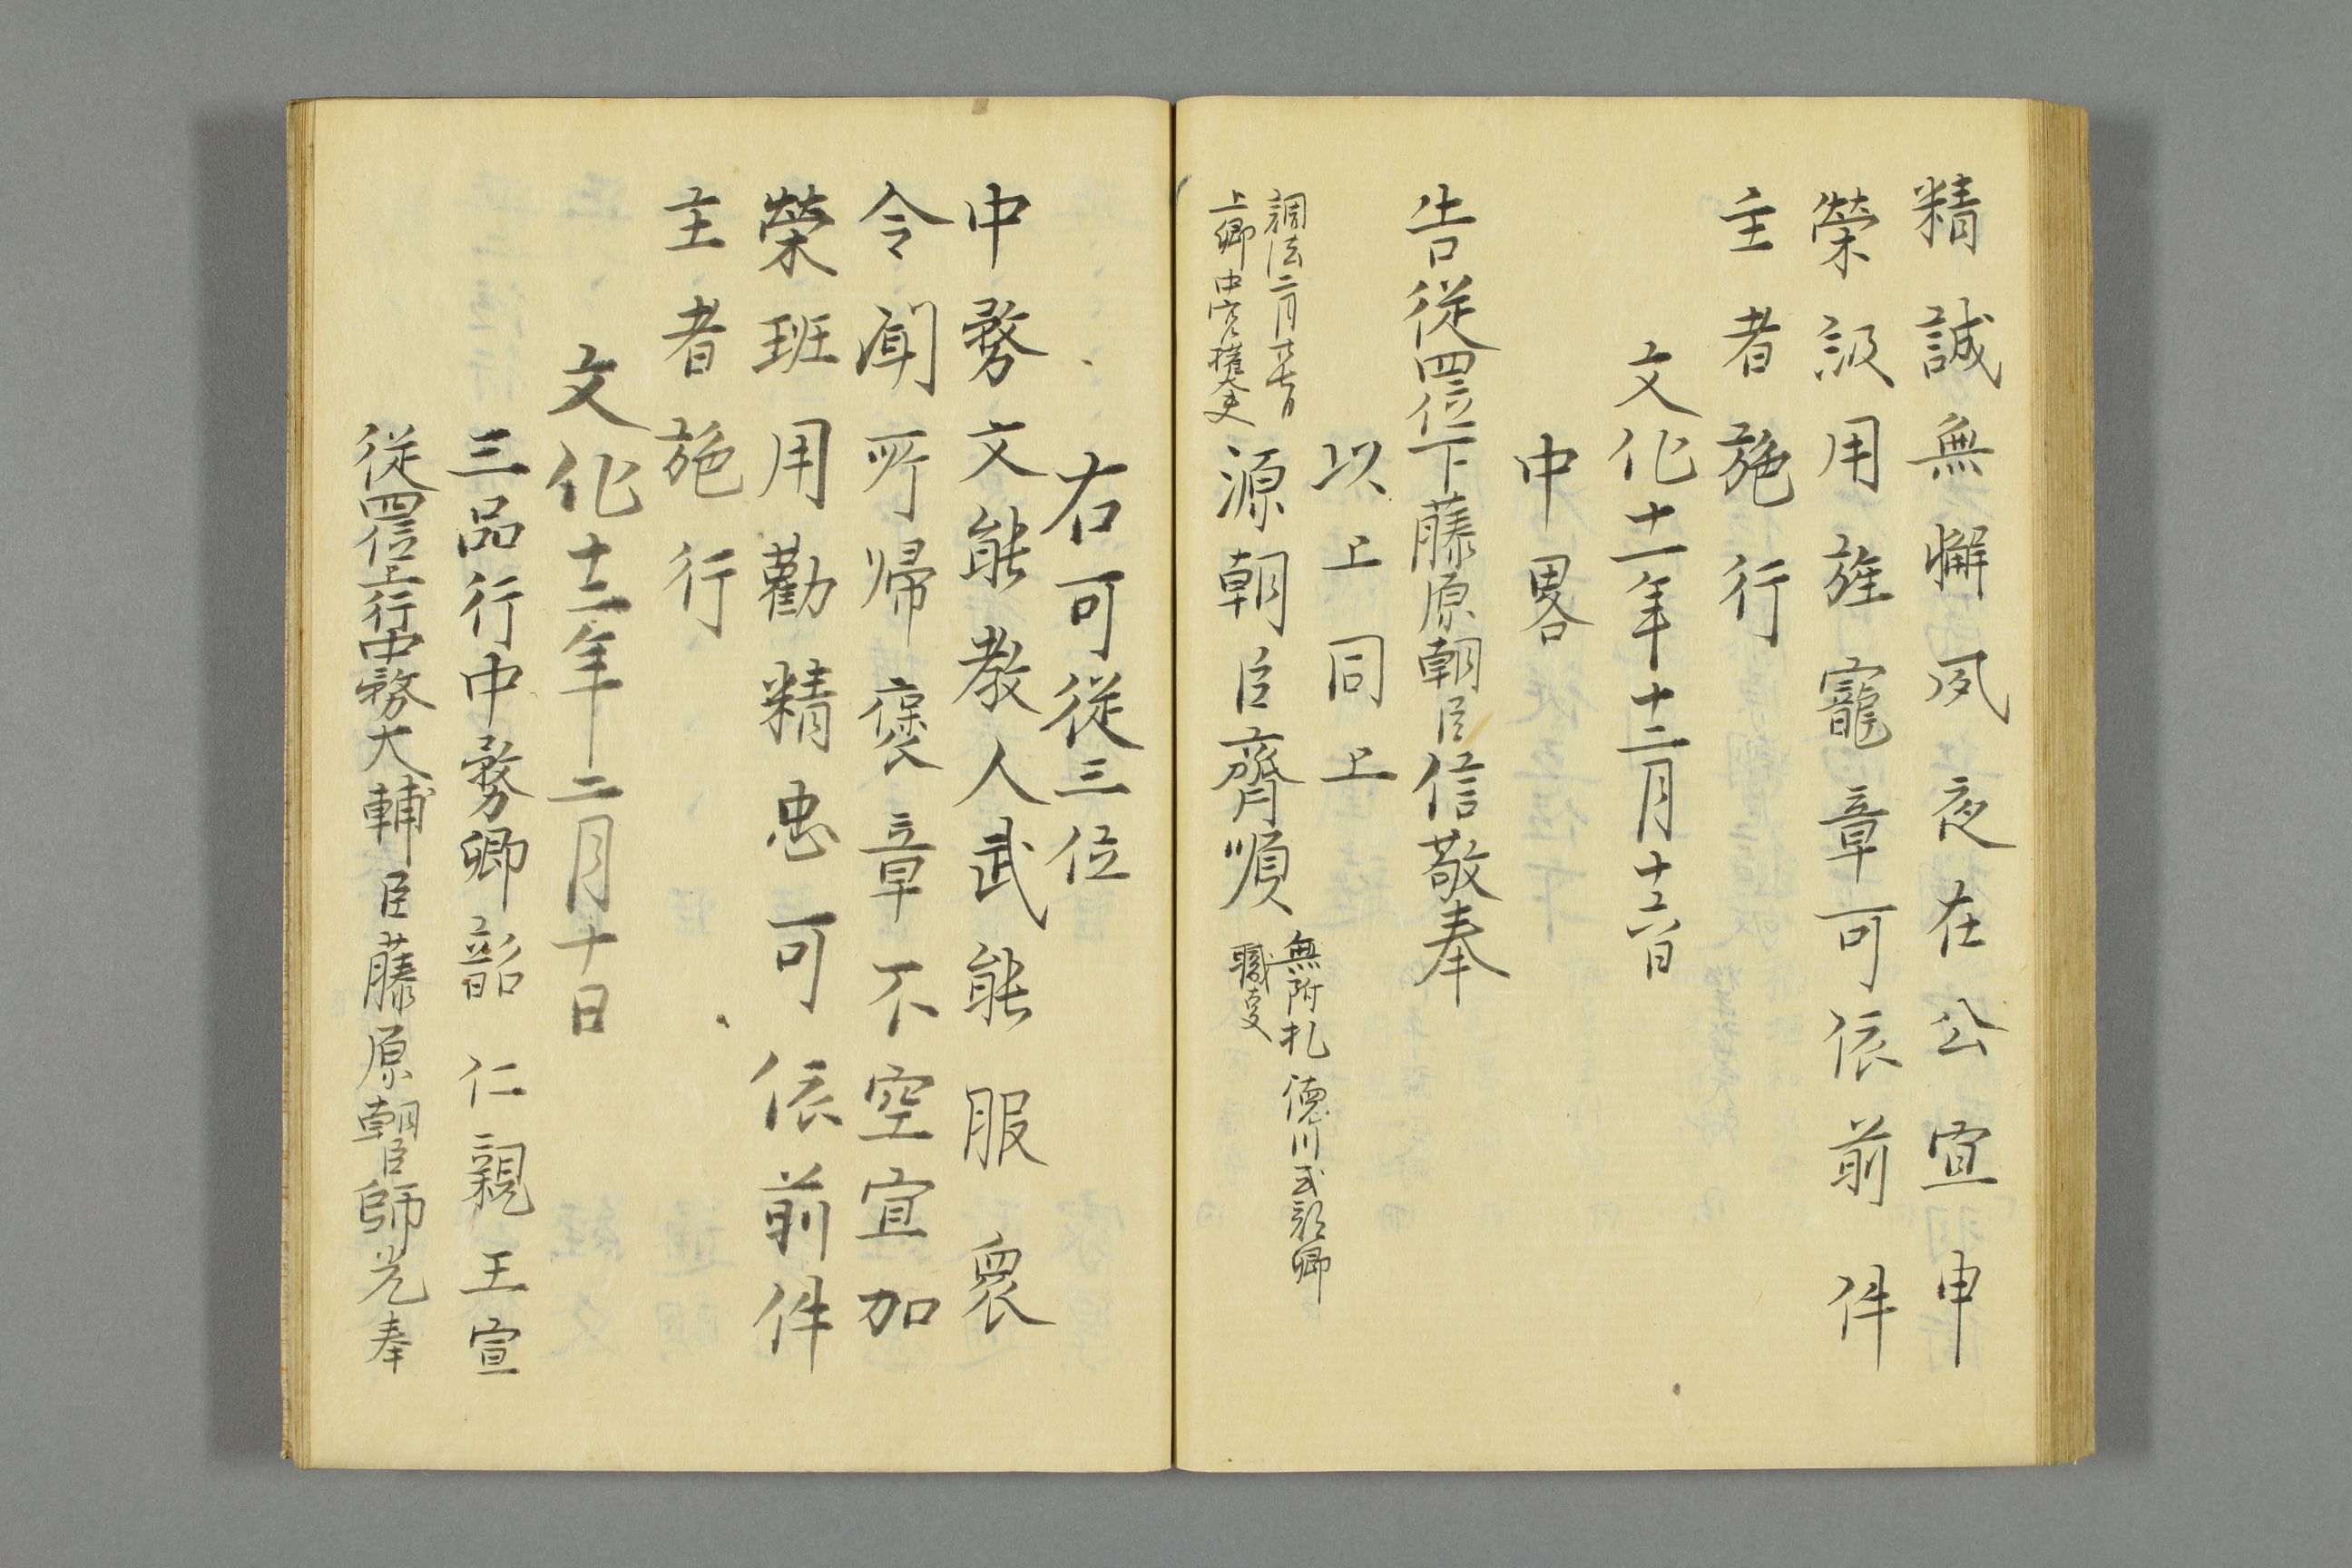 精誠無懈夙夜在公宜申
榮級用旌寵章可依前件
主者施行
文化十一年十二月十六日
中畧
告従四位下藤原朝臣信敬奉
以上同上
調法二月廿七日
上卿中宮権大夫
源朝臣齊順
無附札 徳川式部卿
職夏
右可従三位
中務文能教人武能服衆
令聞所帰褒章不空宜加
榮班用勸精忠可依前件
主者施行
文化十三年二月十日
三品行中務卿韶仁親王宣
従四位上行中務大輔臣藤原朝臣師光奉